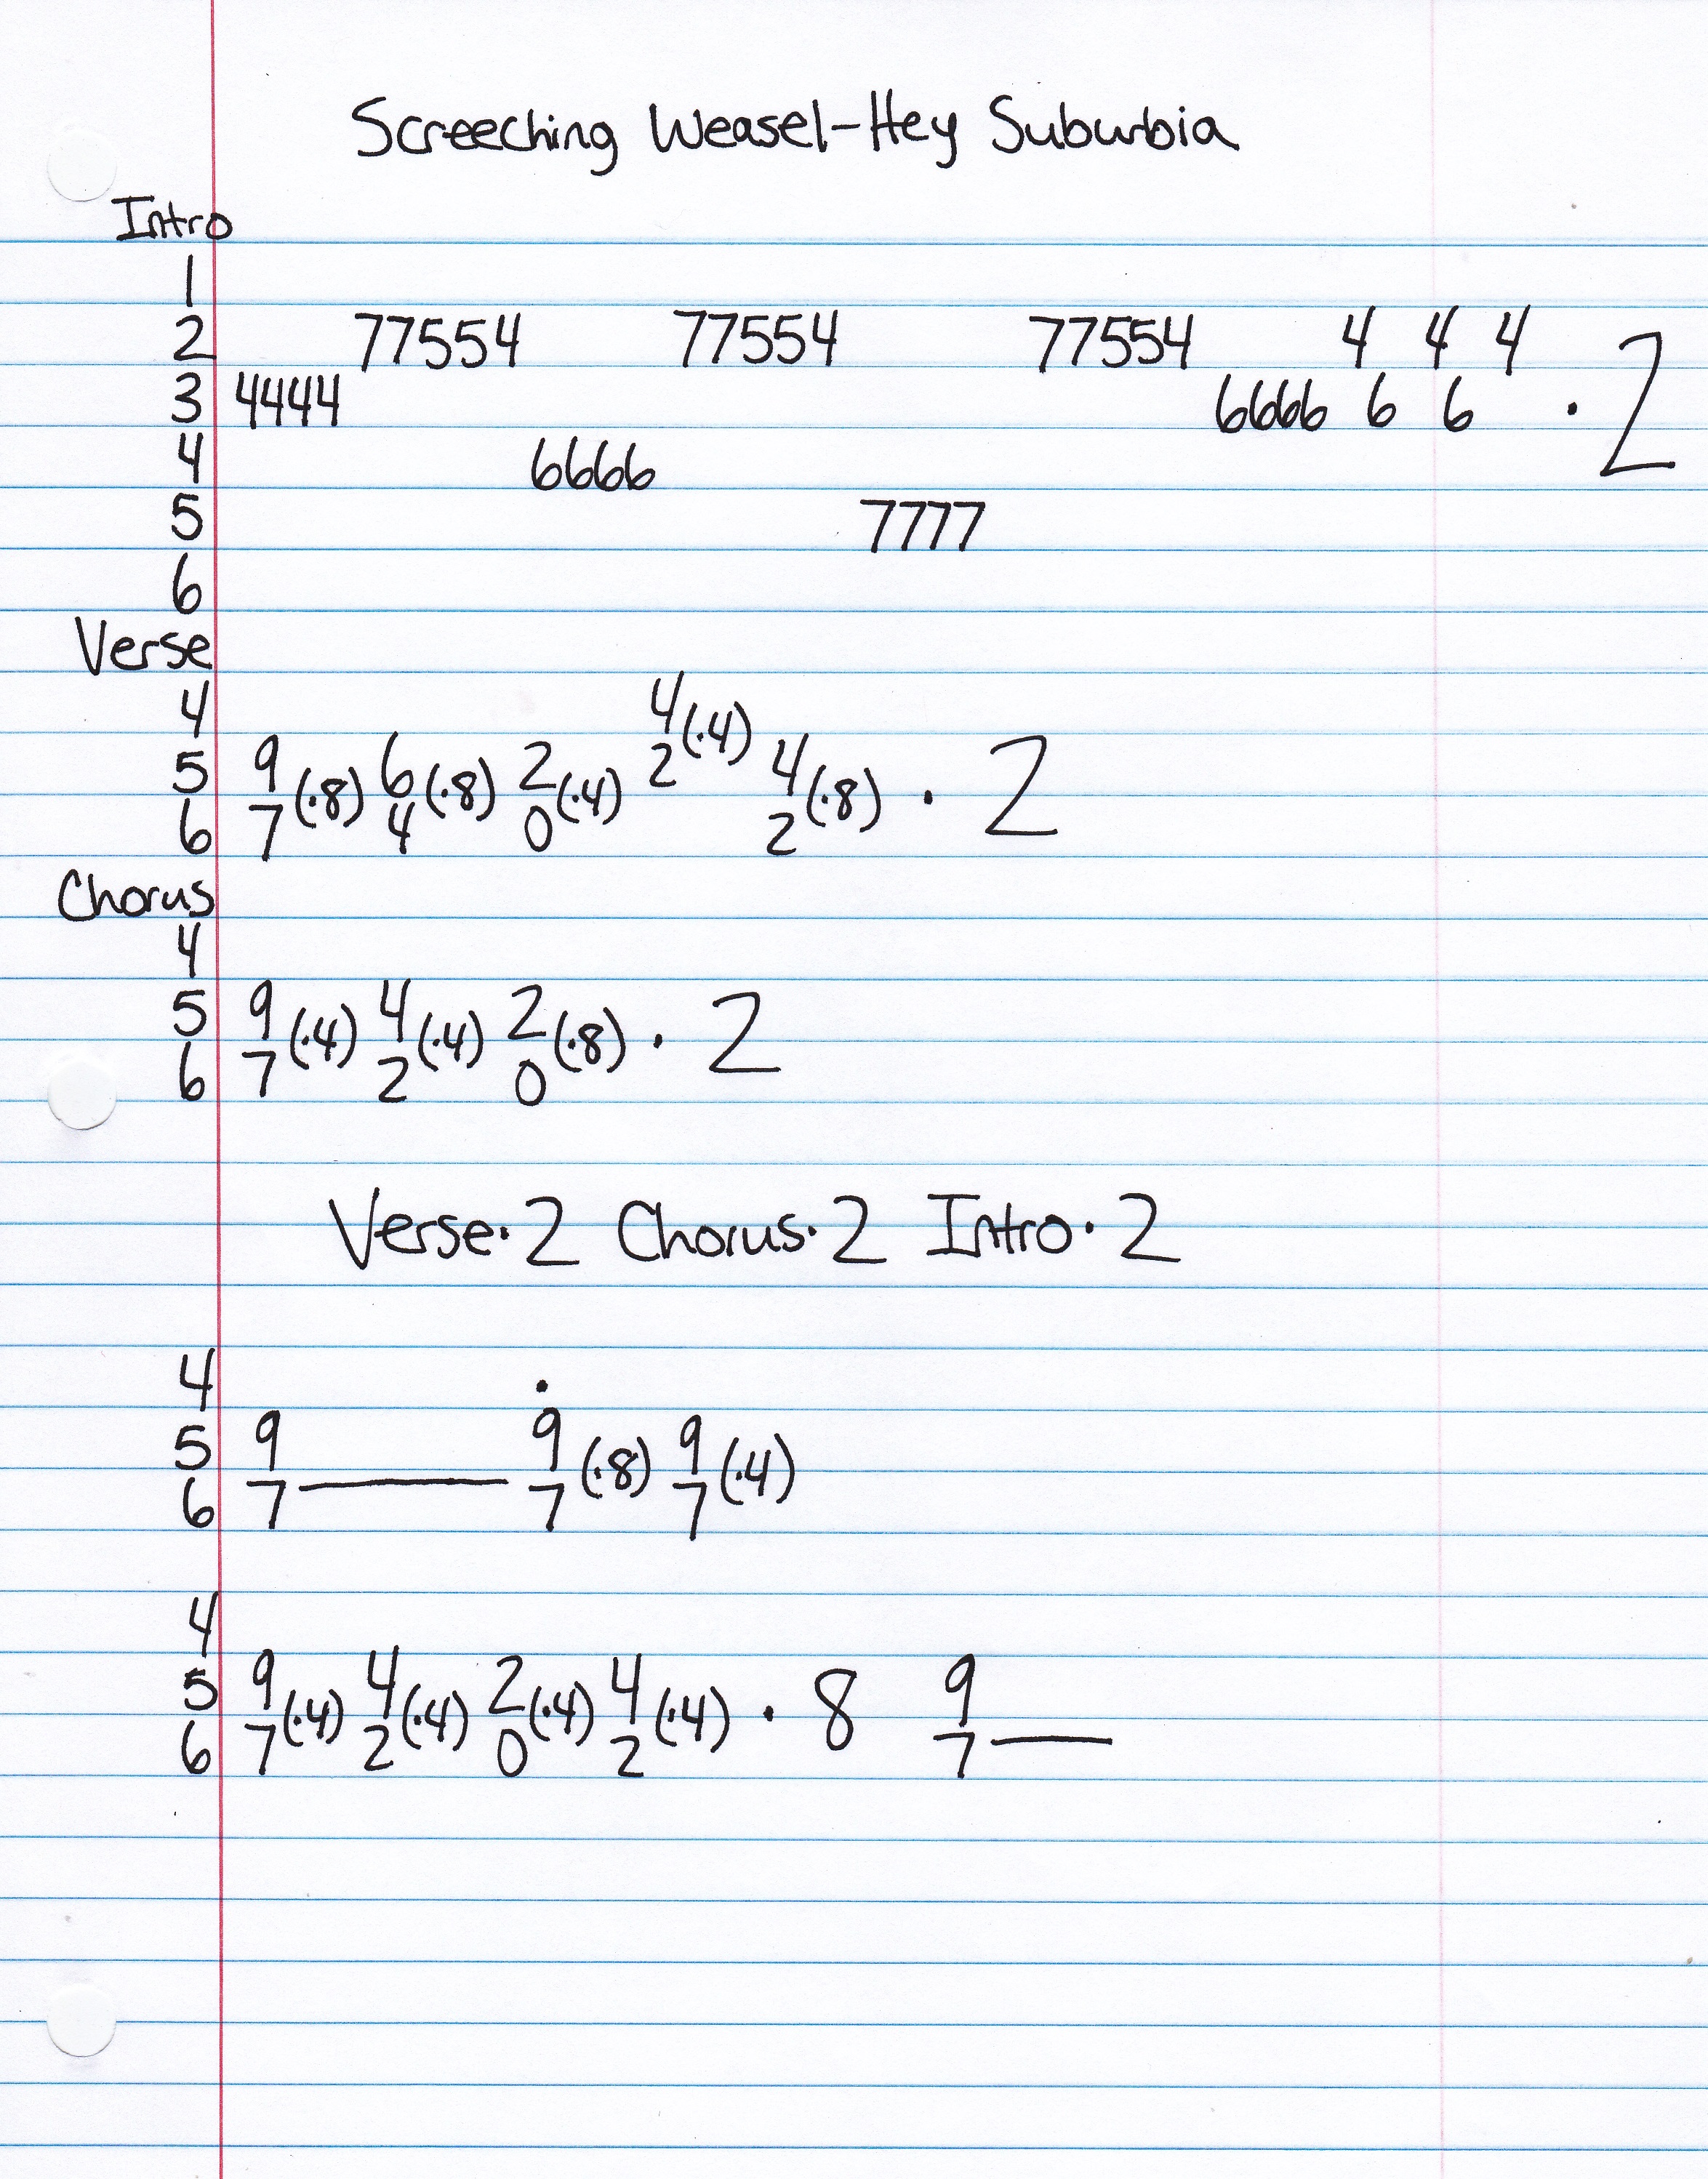 Screeching Weasel-Hey Suburbia
Intro
1
2 77554 77554 77554 4 4 4
3 4444 6666 6 6 · 2
4 6666
5 7777
6
Verse
4 4(·4)
5 9 6 2 2 4
6 7(·8) 4(·8) 0(·4) 2(·8) · 2
Chorus
4
5 9 4 2
6 7(·4) 2(·4) 0(·8) · 2
Verse·2 Chorus·2 Intro·2
4 ·
5 9 9 9
6 7 7(·8) 7(·4)
4
5 9 4 2 4 9
6 7(·4) 2(·4) 0(·4) 2(·4) · 8 7